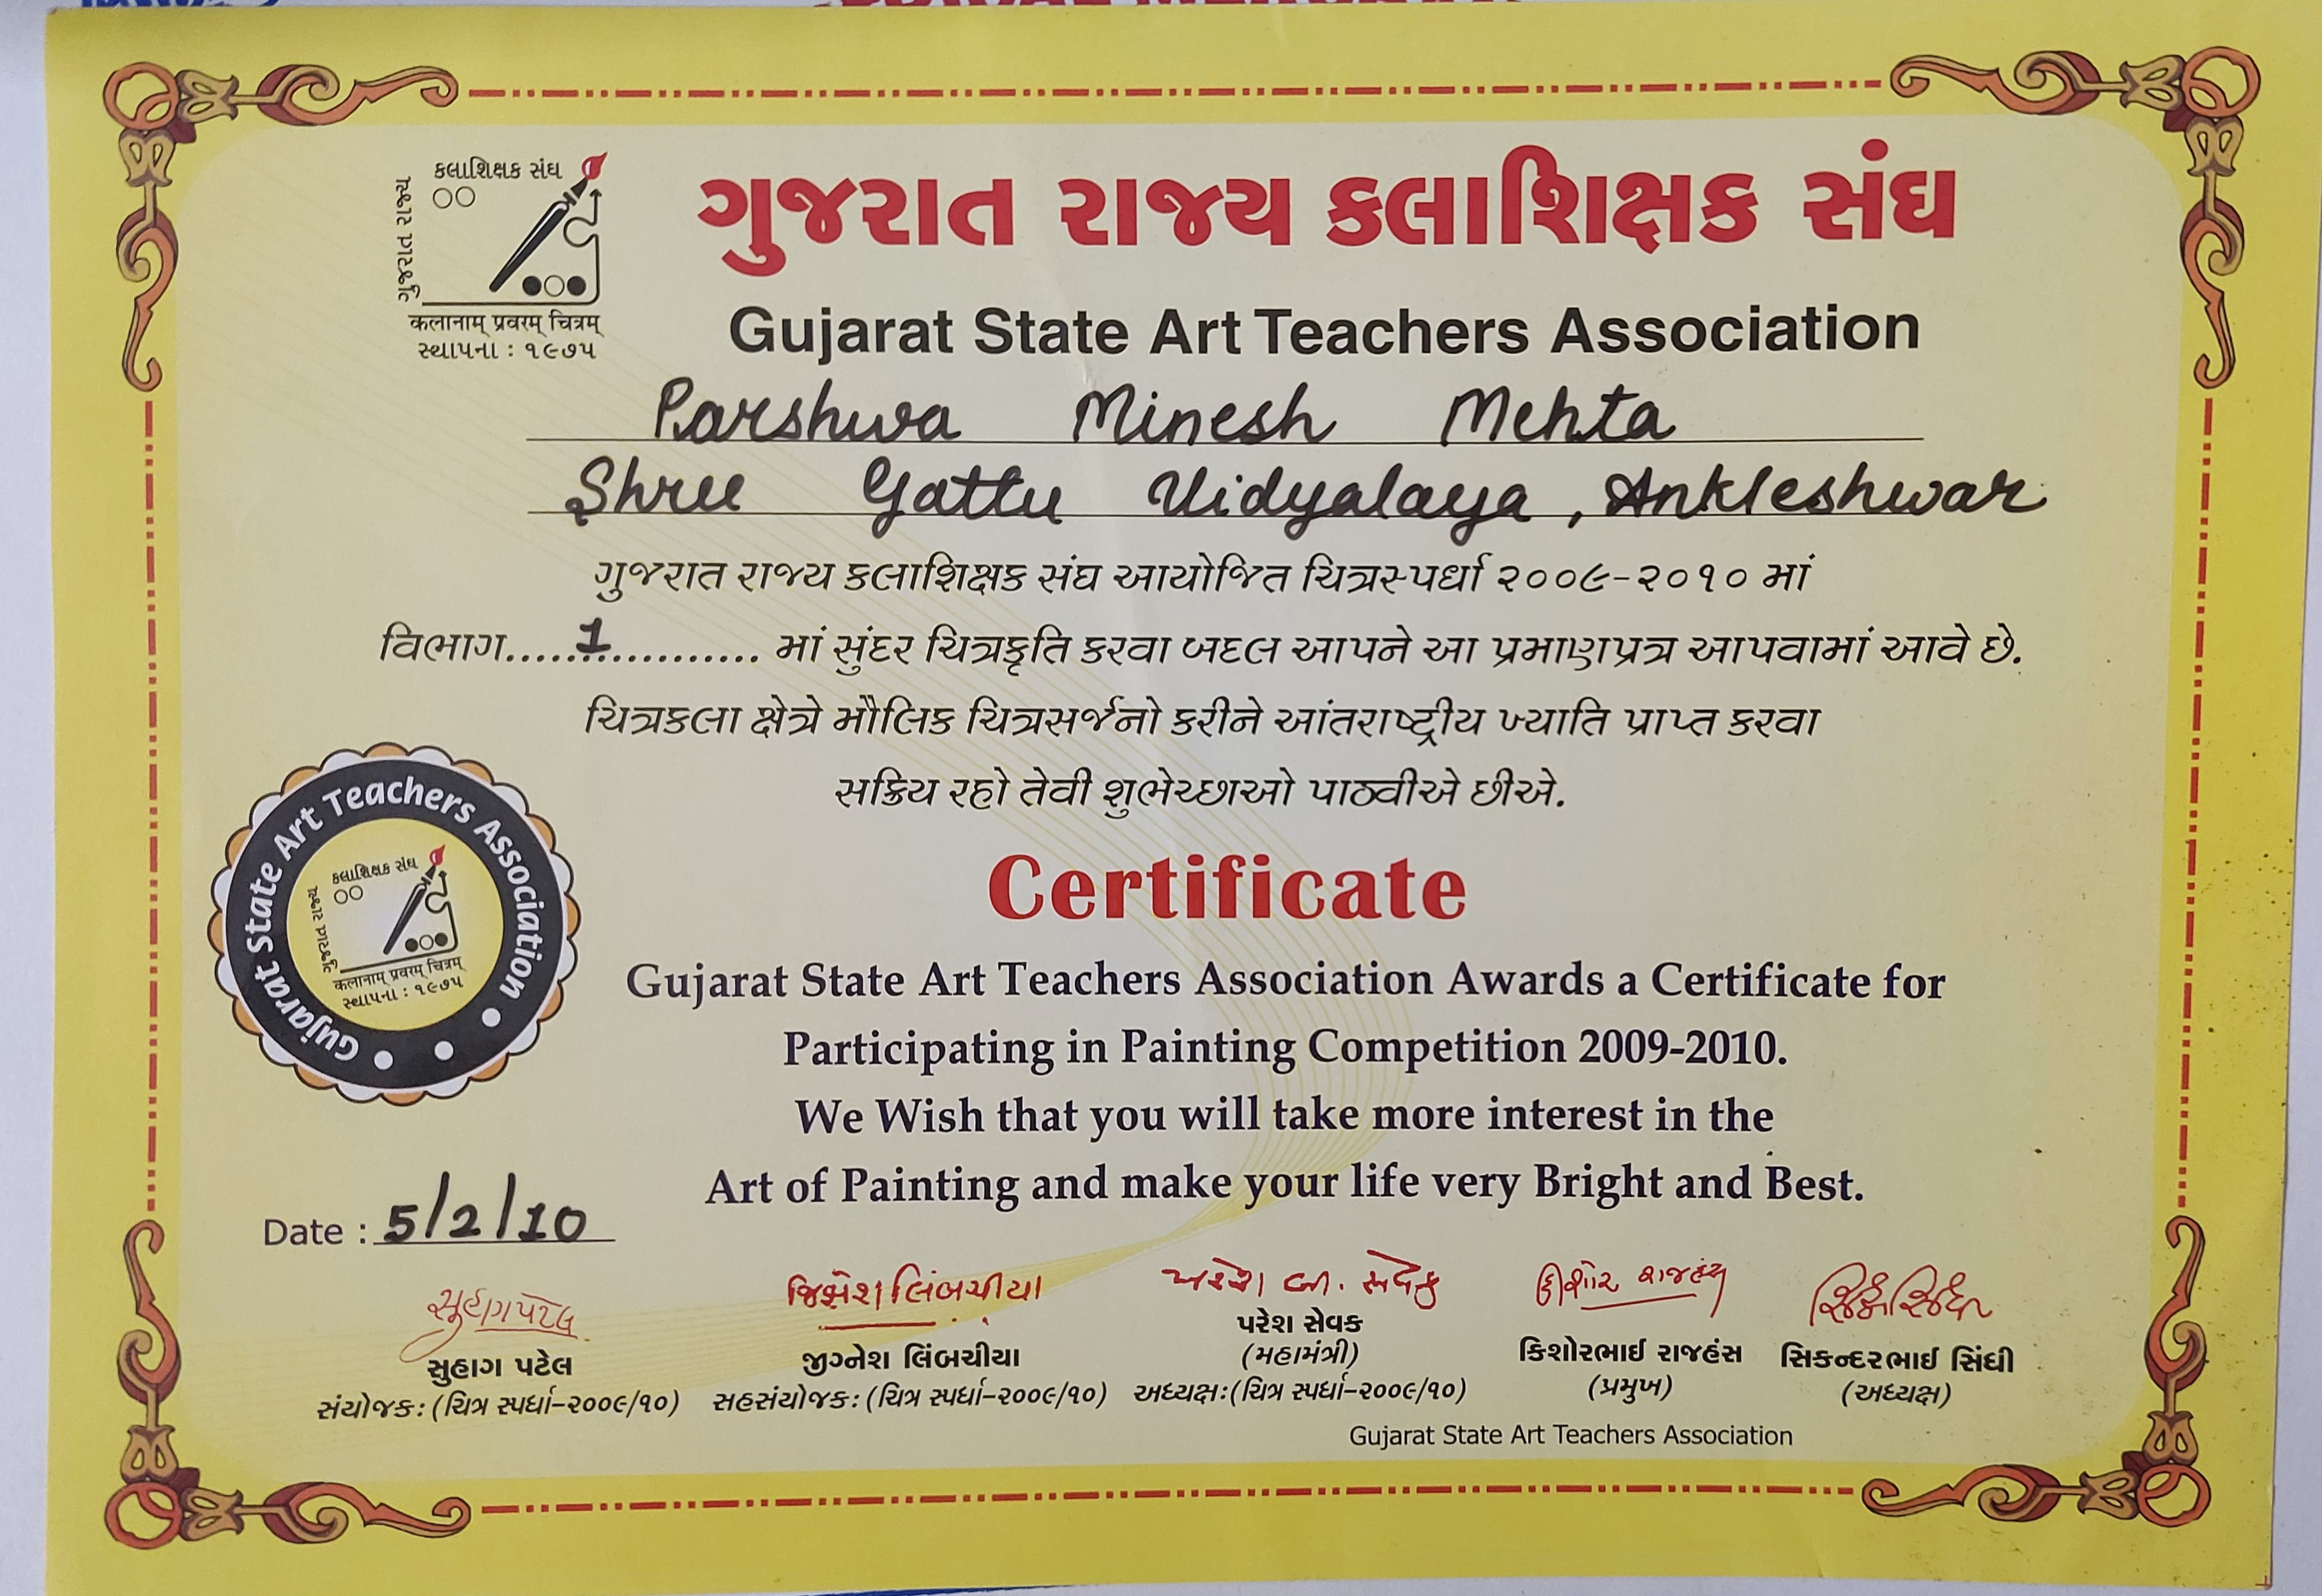 કલાશિક્ષક સંઘ
ગુજરાત રાજ્ય
कलानाम् प्रवरम् चित्रम्
સ્થાપના : ૧૯૭૫
ગુજરાત રાજ્ય કલાશિક્ષક સંઘ
Gujarat State Art Teachers Association
Parshwa Minesh Mehta
Shree Gattu Vidyalaya, Ankleshwar
ગુજરાત રાજ્ય કલાશિક્ષક સંઘ આયોજિત ચિત્રસ્પર્ધા ૨૦૦૯-૨૦૧૦ માં
વિભાગ.....1................. માં સુંદર ચિત્રકૃતિ કરવા બદલ આપને આ પ્રમાણપ્રત્ર આપવામાં આવે છે.
ચિત્રકલા ક્ષેત્રે મૌલિક ચિત્રસર્જનો કરીને આંતરાષ્ટ્રીય ખ્યાતિ પ્રાપ્ત કરવા
સક્રિય રહો તેવી શુભેચ્છાઓ પાઠવીએ છીએ.
Gujarat State Art Teachers Association
કલાશિક્ષક સંઘ
ગુજરાત રાજ્ય
कलानाम् प्रवरम् चित्रम्
સ્થાપના : ૧૯૭૫
Certificate
Gujarat State Art Teachers Association Awards a Certificate for
Participating in Painting Competition 2009-2010.
We Wish that you will take more interest in the
Art of Painting and make your life very Bright and Best.
Date : 5/2/10
સુહાગ પટેલ
જિજ્ઞેશ લિંબચીયા
પરેશ બી. સેવક
કિશોર રાજહંસ
સુહાગ પટેલ
સંયોજક: (ચિત્ર સ્પર્ધા-૨૦૦૯/૧૦)
જીગ્નેશ લિંબચીયા
સહસંયોજક: (ચિત્ર સ્પર્ધા-૨૦૦૯/૧૦)
પરેશ સેવક
(મહામંત્રી)
અધ્યક્ષ:(ચિત્ર સ્પર્ધા-૨૦૦૯/૧૦)
કિશોરભાઈ રાજહંસ
(પ્રમુખ)
સિકન્દરભાઈ સિંધી
(અધ્યક્ષ)
Gujarat State Art Teachers Association